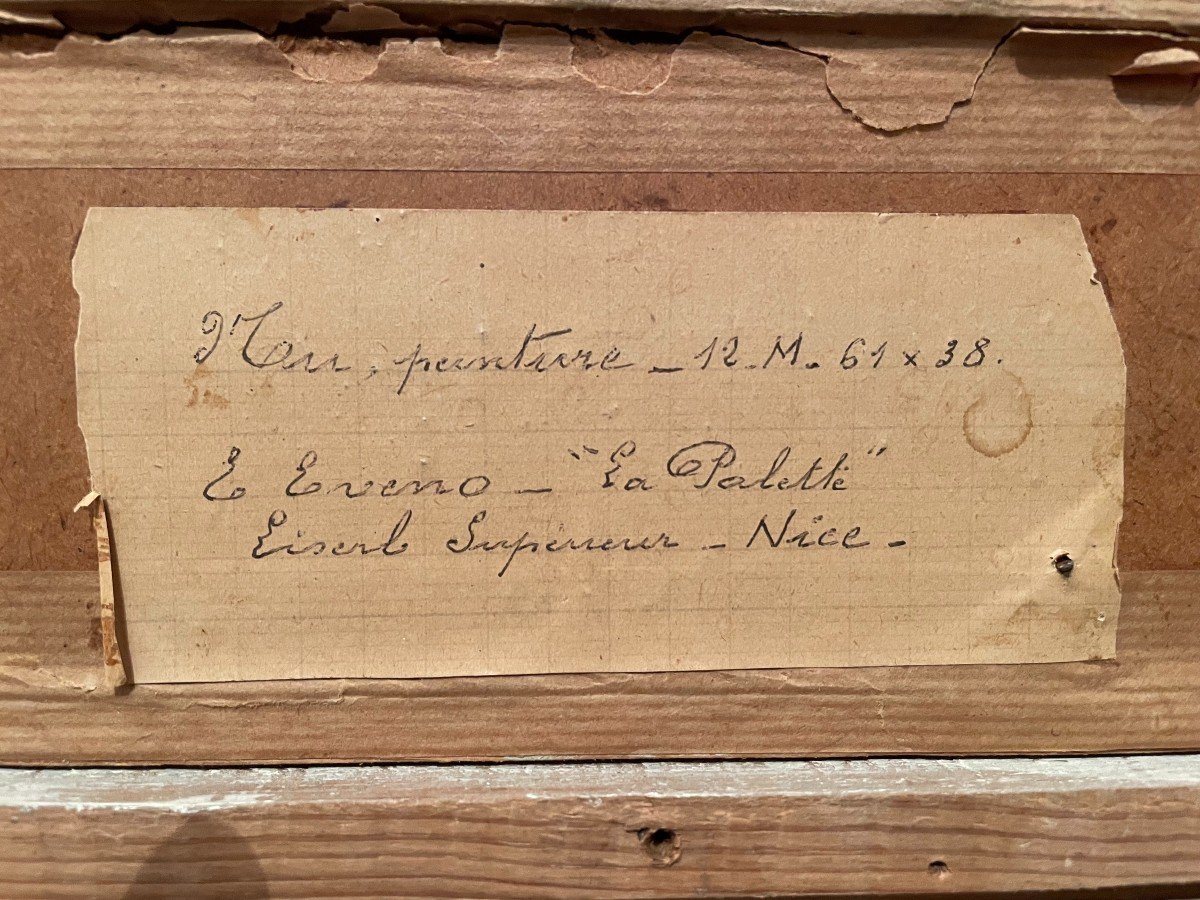 peinture _ 12.M. 61 x 38.
E Eveno _ "La Palette"
Liserb Supérieur - Nice -